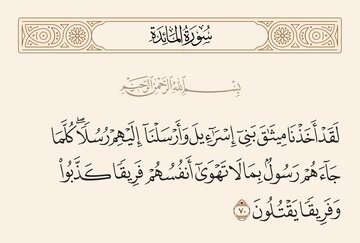 سُورَةُ المَائِدَةِ
بِسْمِ اللَّهِ الرَّحْمَٰنِ الرَّحِيمِ
لَقَدْ أَخَذْنَا مِيثَٰقَ بَنِىٓ إِسْرَٰٓءِيلَ وَأَرْسَلْنَآ إِلَيْهِمْ رُسُلًاۖ كُلَّمَا
جَآءَهُمْ رَسُولٌۢ بِمَا لَا تَهْوَىٰٓ أَنفُسُهُمْ فَرِيقًا كَذَّبُوا۟
وَفَرِيقًا يَقْتُلُونَ ٧٠